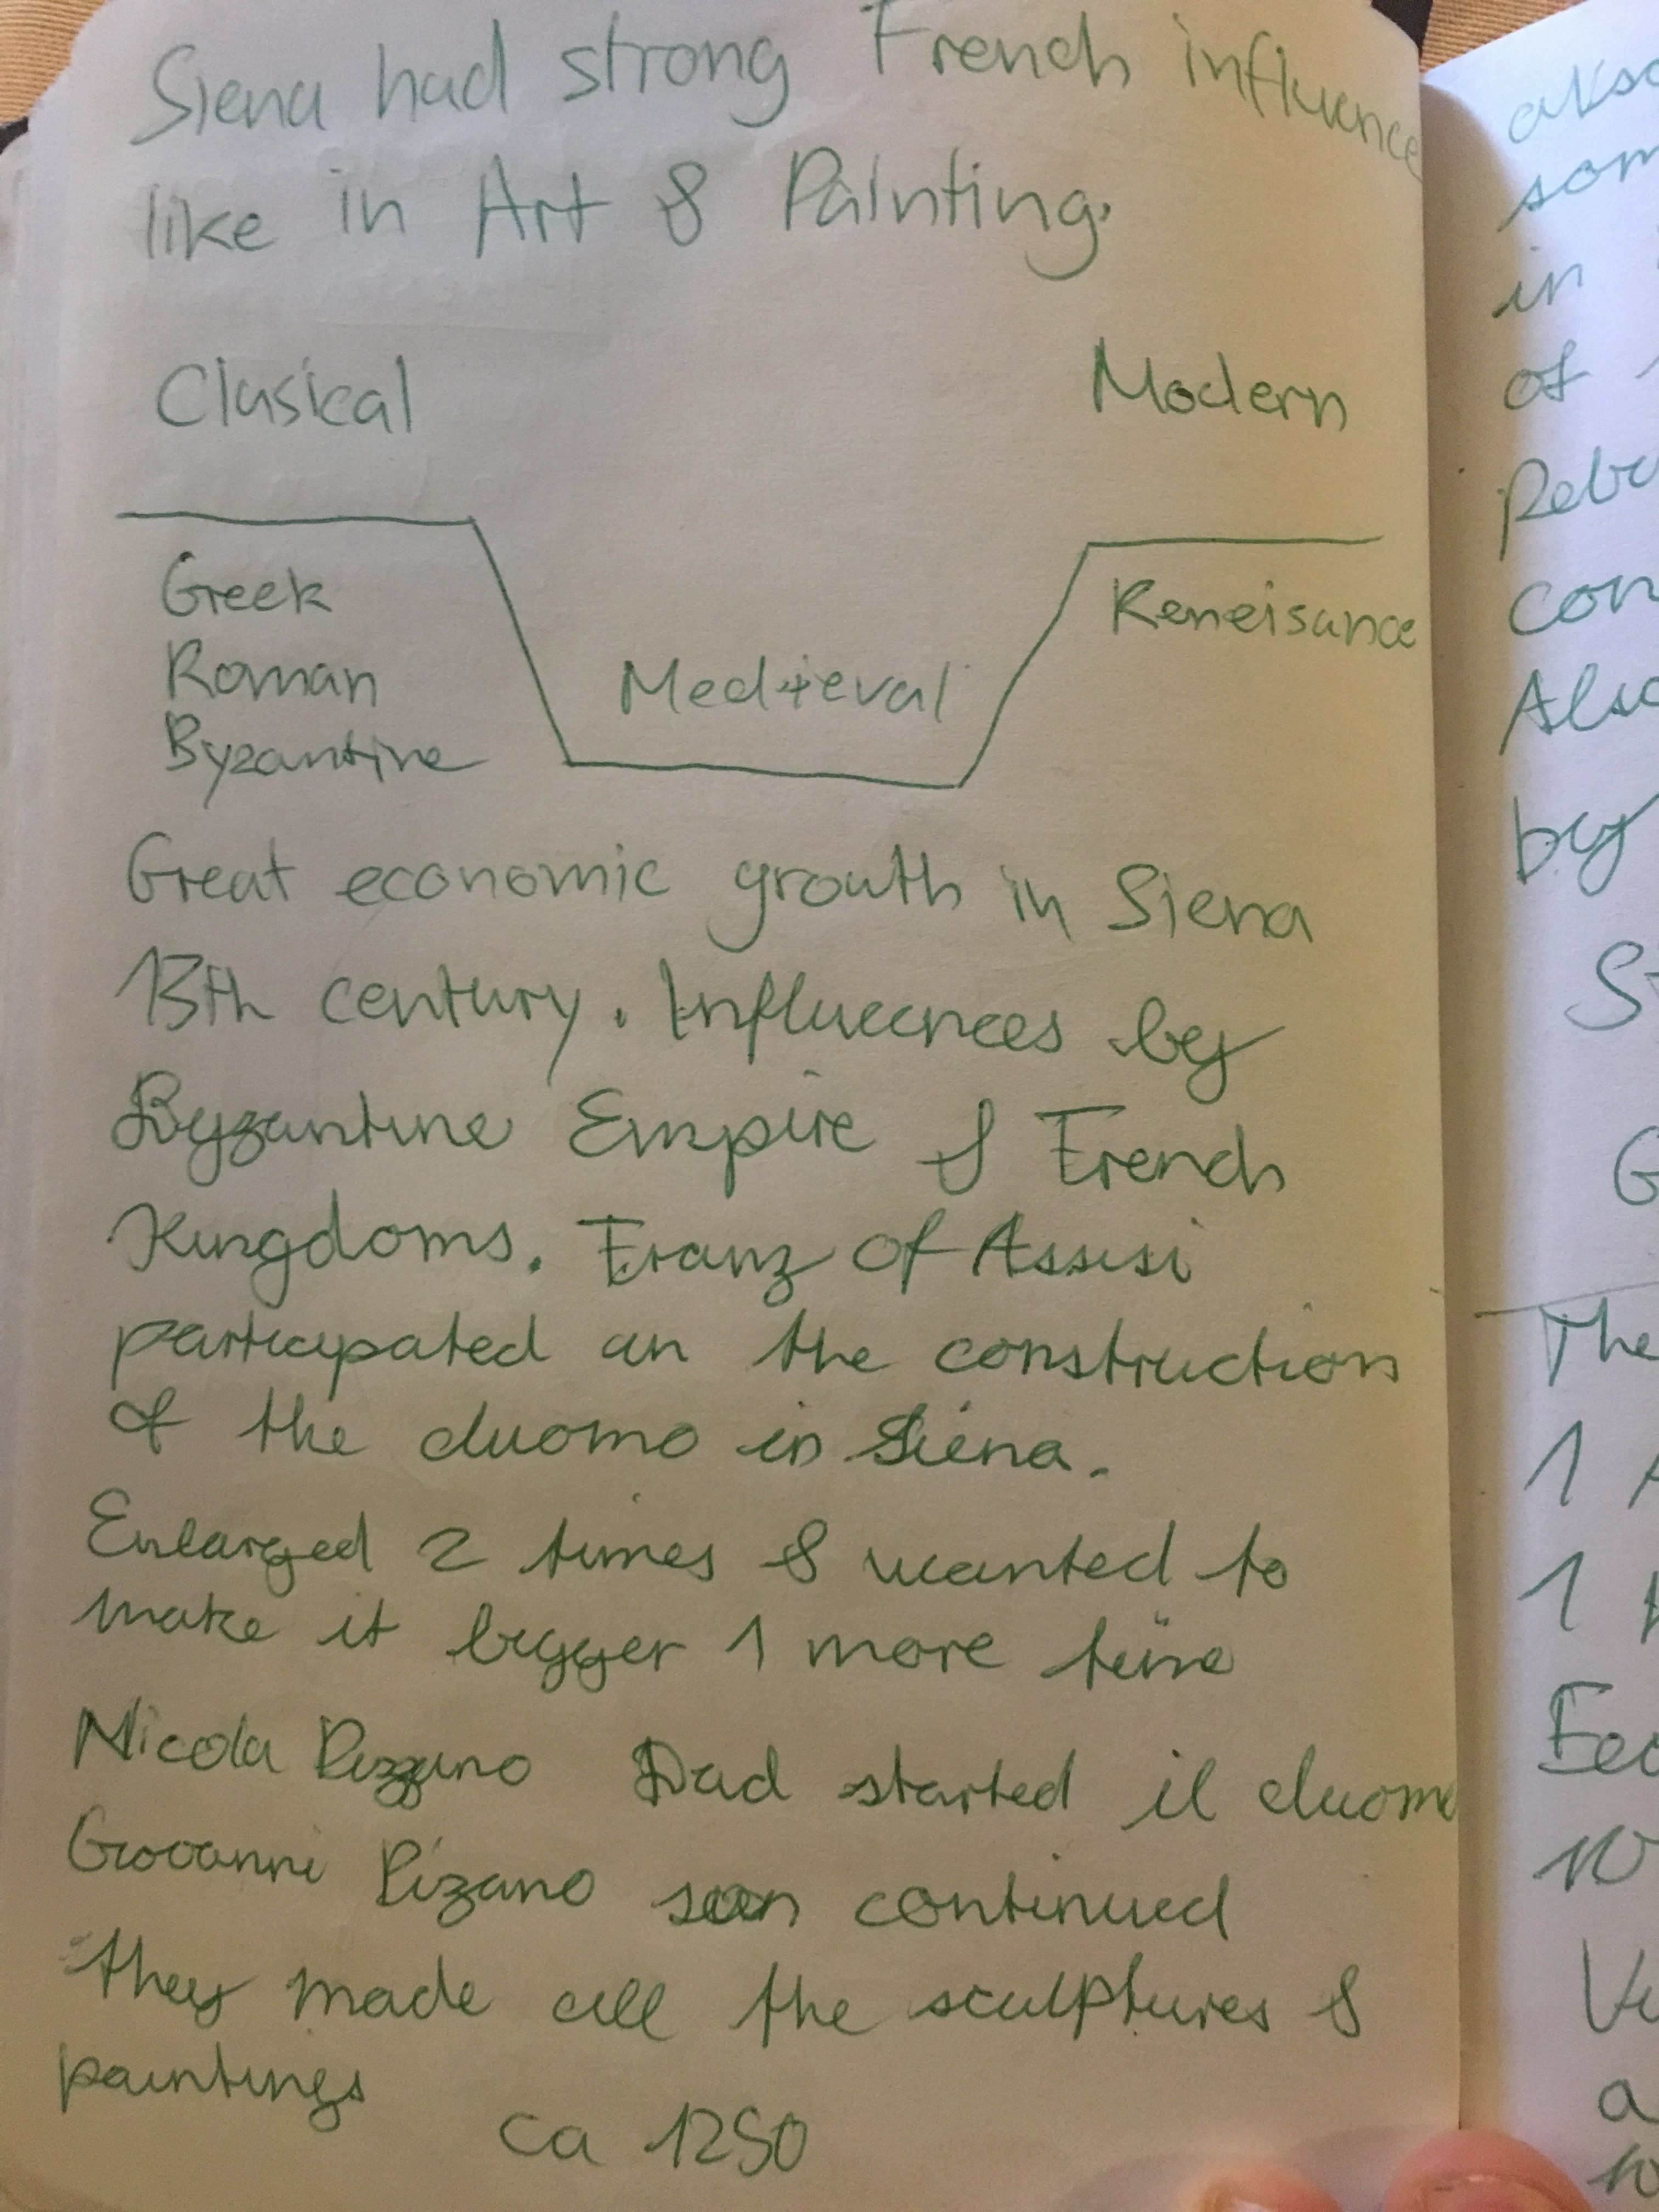 Siena had strong French influence
like in Art & Painting.
Clasical
Modern
Greek
Roman
Byzantine
Medieval
Reneisance
Great economic growth in Siena
13th century. Influences by
Byzantine Empire & French
Kingdoms. Franz of Assisi
participated an the construction
of the duomo in Siena.
Enlarged 2 times & wanted to
make it bigger 1 more time
Nicola Pizzano Dad started il duomo
Giovanni Pizano son continued
they made all the sculptures &
paintings
ca 1250
in
of
Also
by
The
1
1
10
a
10